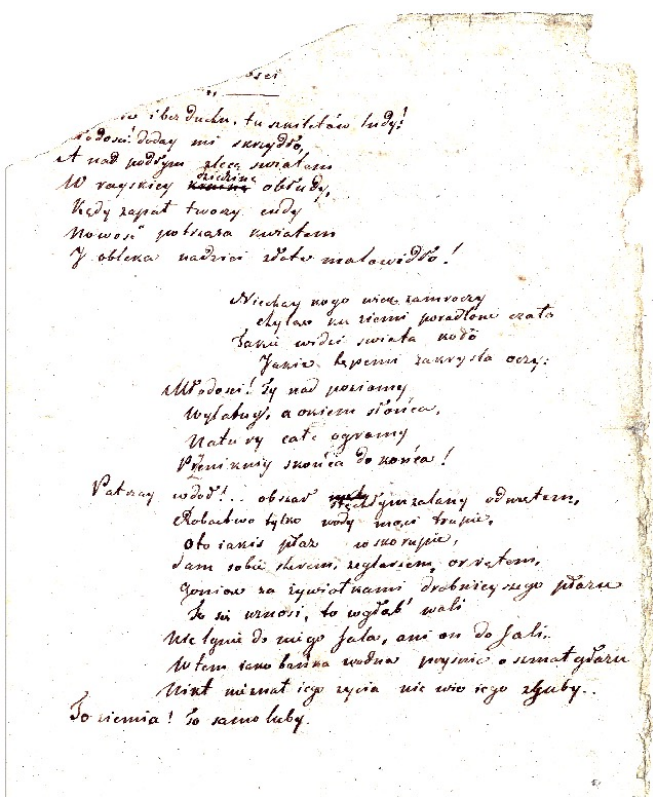 ości
i bez ducha, tu szkieletów ludy!
Młodości! doday mi skrzydła,
A nad podłym zlecę światem
W rayskiey dziedzinę obłudy,
Kędy zapał tworzy cudy
Nowość potrząsa kwiatem
Y obleka nadziei złote malowidło!
Niechay kogo wiek zamroczy
chyląc ku ziemi poradlone czoło
Takie widzi świata koło
Jakie tępemi zakryśla oczy:
Młodości! Ty nad poziomy
Wylatuy, a okiem słońca,
Natury całe ogromy
Przeniknij z końca do końca!
Patrzay w doł!.. obszar stęchłym zalany odmętem,
Robactwo tylko wody męci trupie,
oto iakiś płaz w skorupie,
sam sobie sterem, żeglarzem, okrętem,
goniąc za żywiołkami drobnieyszego płazu
To się wznosi, to w głąb' wali
Nie lgnie do niego fala, ani on do fali..
Wtem iako bańka wodna prysnie o szmat głazu
Nikt nieznał iego życia nie wie iego zguby..
To ziemia! To samoluby.